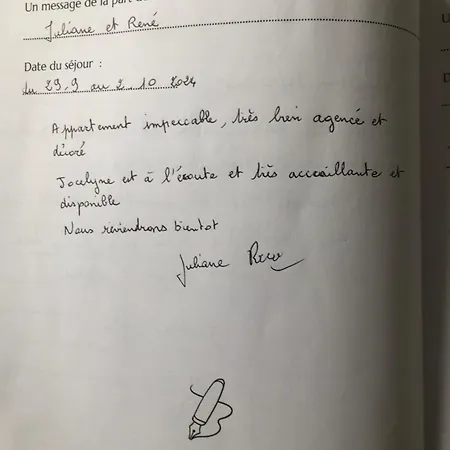 Un message de la part de
Juliane et René
Date du séjour :
du 29.9 au 2.10 2024
Appartement impeccable, très bien agencé et
décoré
Jocelyne est à l'écoute et très accueillante et
disponible
Nous reviendrons bientot
Juliane
U
D